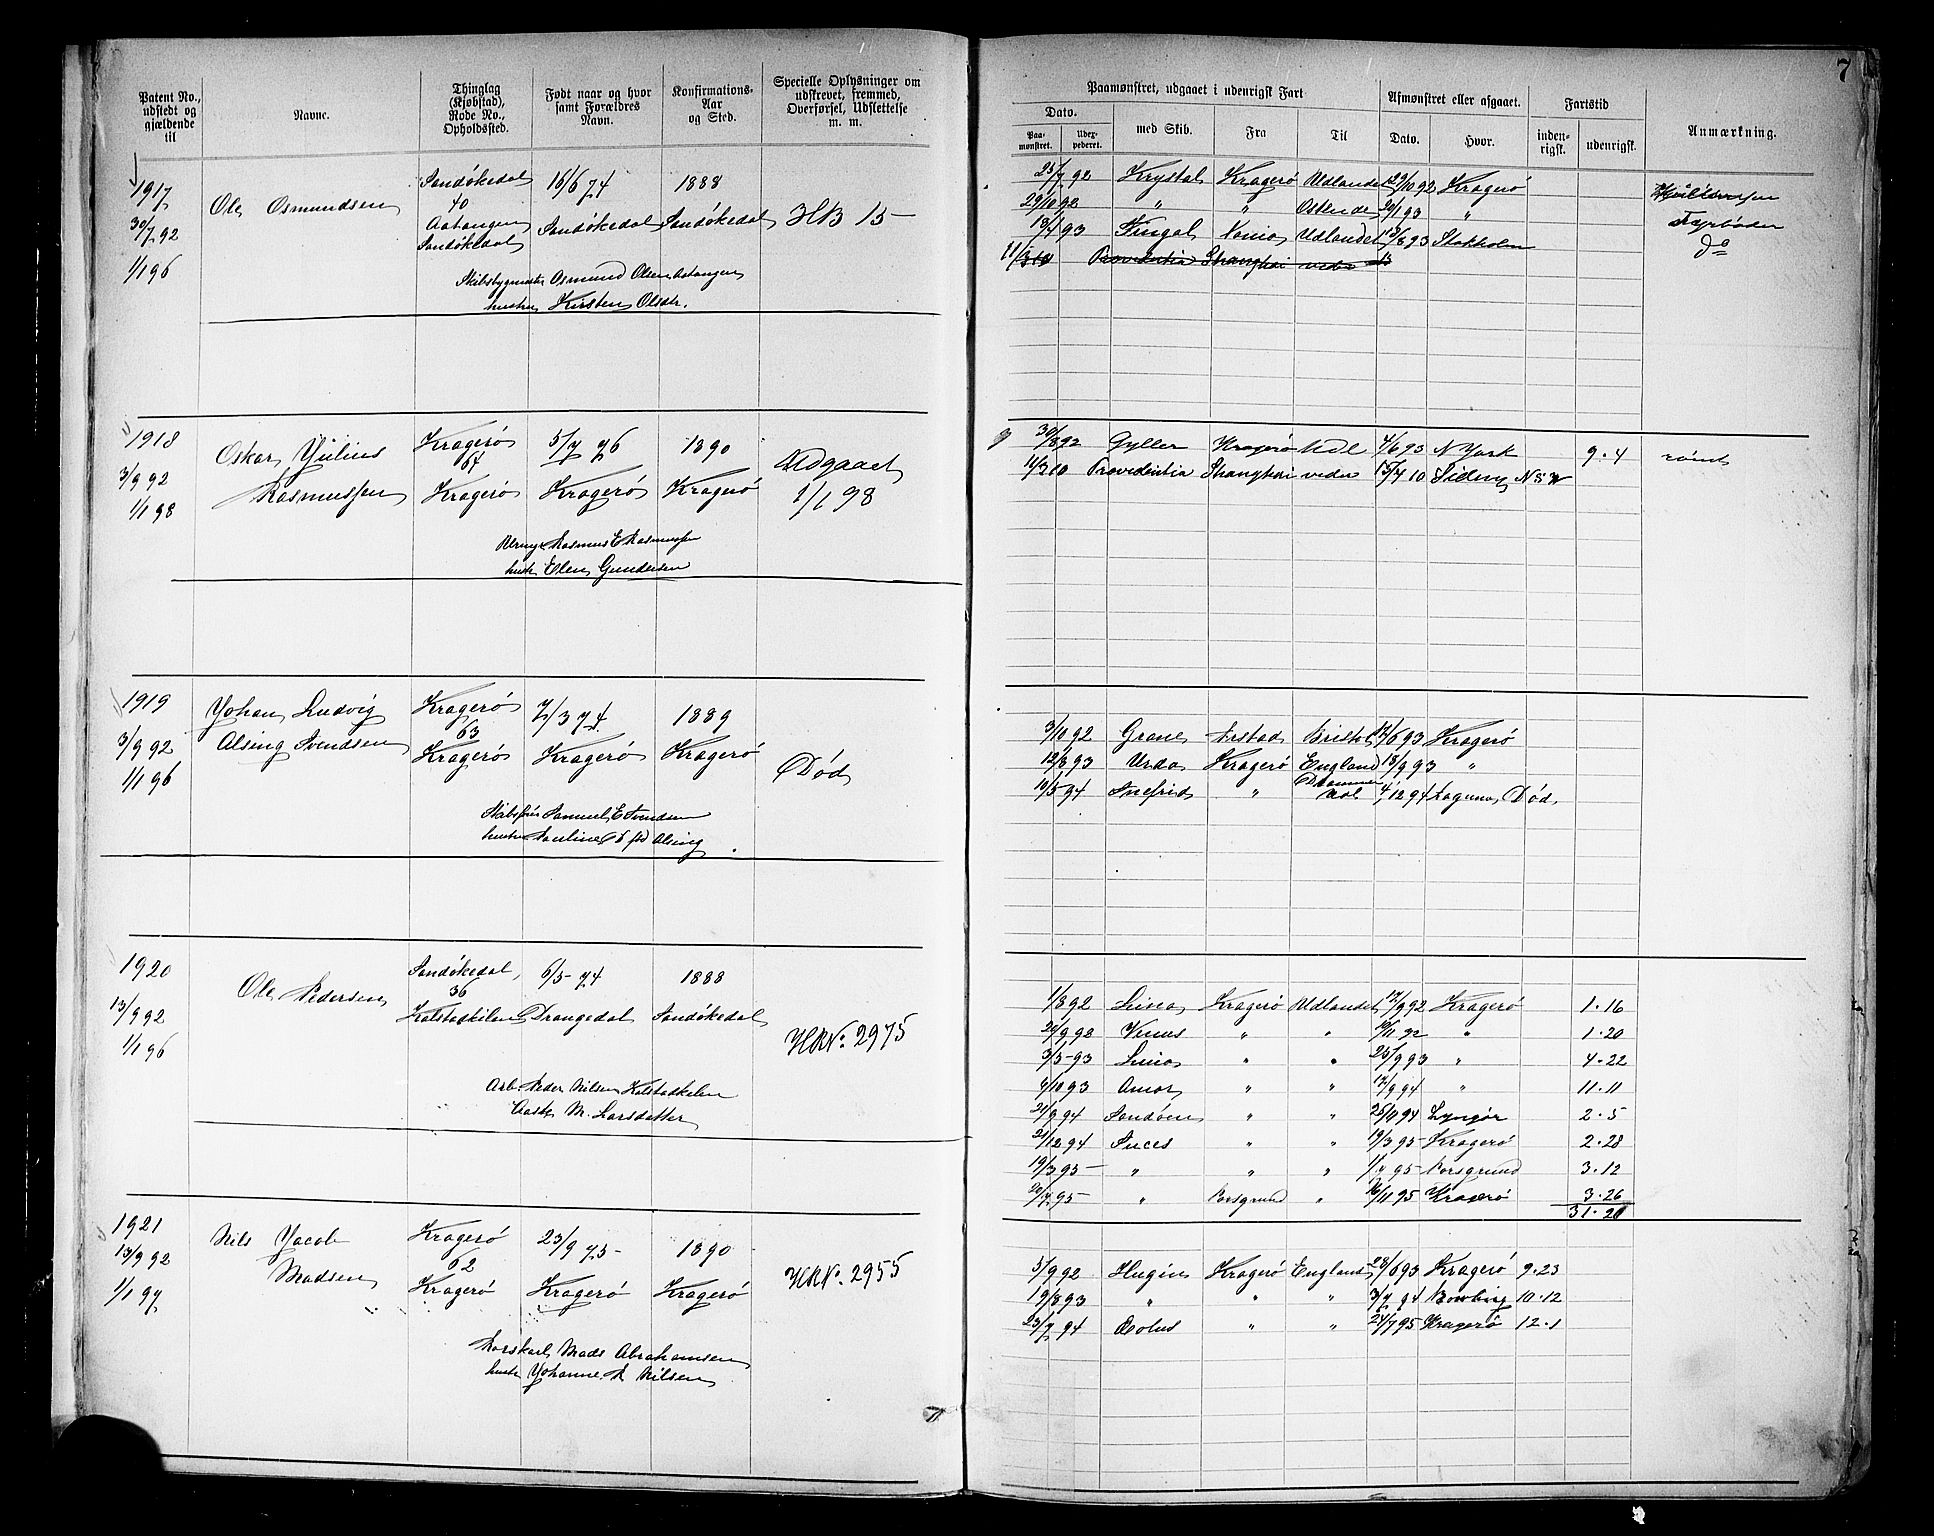 7
Patent No., udstedt og gjældende til
Navne.
Thinglag (Kjøbstad), Rode No., Opholdssted.
Født naar og hvor samt Forældres Navn.
Konfirmations-Aar og Sted.
Specielle Oplysninger om udskrevet, fremmed, Overførsel, Udslettelse m. m.
Paamønstret, udgaaet i udenrigsk Fart
Afmønstret eller afgaaet.
Fartstid
Anmærkning.
Dato.
Paa-mønstret.
Udex-pederet.
med Skib.
Fra
Til
Dato.
Hvor.
inden-rigsk.
udenrigsk.
1917
30/7 92
1/1 96
Ole Osmundsen
Sandökedal
40
Aatangen
Sandökedal
16/6 74
Sandökedal
1888
Sandökedal
HB 15-
Skibsbygmester Osmund Olsen Aatangen
hustru Kirsten Olsdtr.
25/7 92 Krystal Kragerö Udlandet 29/10 92 Kragerö
29/10 92 " " Ostende 20/1 93 "
13/4 93 Kingal Udlandet 13/8 93 Stokholm
11/3 10 Providentia Shanghai videre
Fyrböder
do
1918
3/9 92
1/1 98
Oskar Julius
Rasmussen
Kragerö
64
Kragerö
5/7 76
Kragerö
1890
Kragerö
Udgaaet
1/1 98
Rasmus E Rasmussen
hustr Elen Gundersen
30/8 92 Gyller Kragerö Udl 4/6 93 N York 9.4 römt
11/3 10 Providentia Shanghai videre 15/4 10 Sidney N S W
1919
3/9 92
1/1 96
Johan Ludvig
Alsing Svendsen
Kragerö
63
Kragerö
7/3 74
Kragerö
1889
Kragerö
Död
Skibsför Samuel E Svendsen
hustru Pauline fød Alsing
3/10 92 Grane Bristol 12/6 93 Kragerö
12/8 93 Urda Kragerö England 18/9 93 "
10/5 94 Snefrid " 4/12 94 Laguna Död
1920
13/9 92
1/1 96
Ole Pedersen
Sandökedal
36
Kalstadkilen
6/5 - 74
Drangedal
1888
Sandökedal
HRNo. 2975
Arb. Peder Nilsen Kalstadkilen
Aaste M. Larsdatter
1/8 92 Lina Kragerö Udlandet 12/9 92 Kragerö 1.16
20/9 92 Venus " " 10/11 92 " 1.20
3/5-93 Lina " " 25/9 93 " 4.22
4/10 93 Amor " " 12/9 94 " 11.11
21/9 94 Sandöen " " 25/11 94 Lyngör 2.5
21/12 94 Succes " " 19/3 95- Kragerö 2.28
19/3 95- " " " 1/7 95- Porsgrund 3.12
20/7 95- " Porsgrund " 16/11 95 Kragerö 3.26
31.20
1921
13/9 92
1/1 97
Nils Jacob
Madsen
Kragerö
62
Kragerö
23/9 75-
Kragerö
1890
Kragerö
HRNo. 2955
Mads Abrahamsen
hustr Johanne Nilsen
5/9 92 Hugin Kragerö England 28/6 93 Kragerö 9.23
19/8 93 " " " 3/7 94 Bowling 10.12
23/7 94 Æolus " " 24/7 95 Kragerö 12.1
7